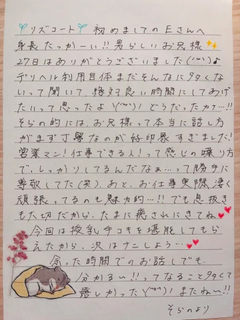 リズコート 初めましてのEさんへ
身長たっかーい!!男らしいお兄様
27日はありがとうございました(˙꒳˙)♪
デリヘル利用自体まだそんなに多くな
いって聞いて、絶対良い時間にしてあげ
たいって思ったよ どうだったカナー!!
そらの的には、お兄様って本当に話し方
がまず丁寧なのが好印象すぎました!
営業マン!仕事できる人!って感じの喋り方
で、しっかりしてるんだなぁーって勝手に
尊敬してた(笑)あと、お仕事実際凄く
頑張ってるのも魅力的…!!でも息抜き
もた切だから、たまに癒されにきてね
今回は授乳手コキを堪能してもら
えたから、次はナニしよう…
余った時間でのお話しでも
分かるー!!ってなること多くて
楽しかった またねー!!
そらのより